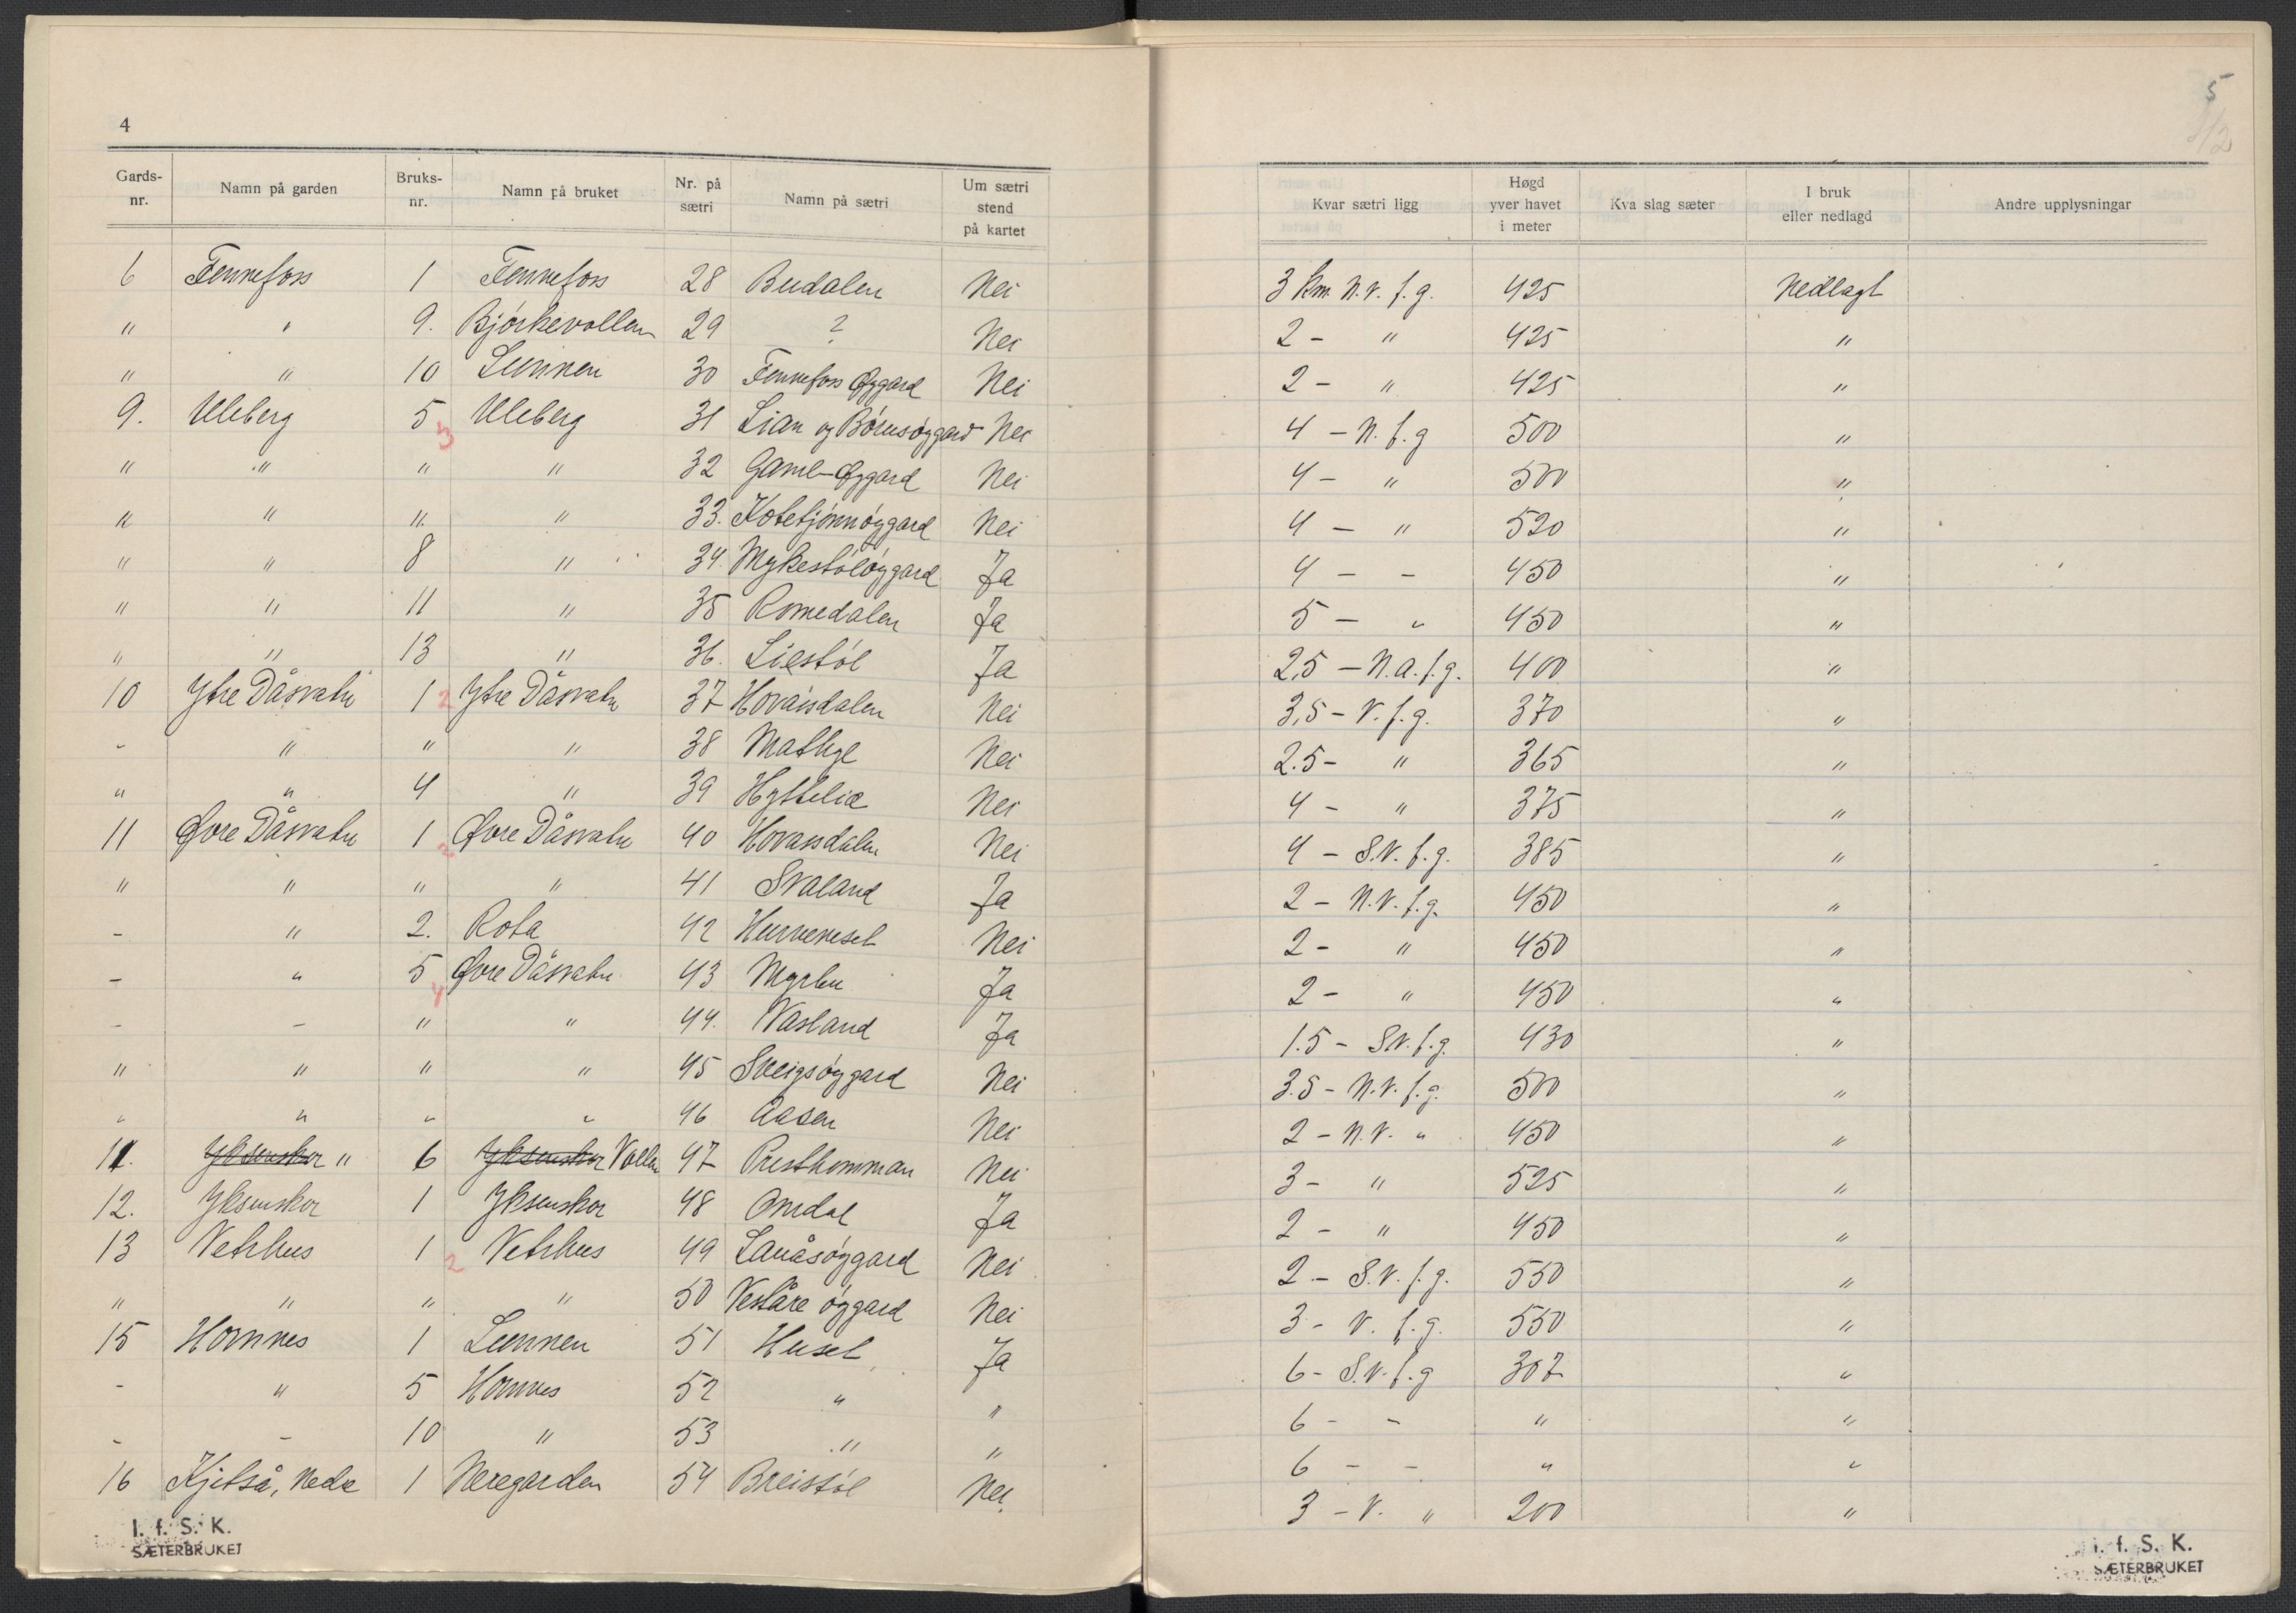 4
5
Gards-nr. Namn på garden Bruks-nr. Namn på bruket Nr. på sætri Namn på sætri Um sætri stend på kartet Kvar sætri ligg Høgd yver havet i meter Kva slag sæter I bruk eller nedlagd Andre upplysningar
6 Fennefoss 1 Fennefoss 28 Budalen Nei 3 km. N.V. f.g. 425 Nedlagt
" " 9. Bjørkevollen 29 ? Nei 2 - " 425 "
" " 10 Lunnen 30 Fennefoss Øygard Nei 2 - " 425 "
9. Uleberg 5 3 Uleberg 31 Lian og Börusöygard Nei 4 - N. f.g 500 "
" " " " 32 Gaml-Øygard Nei 4 - " 500 "
" " " " 33. Kotetjönnöygard Nei 4 - " 520 "
" " 8 " 34. Mykestölöygard Ja 4 - - 450 "
" " 11 " 35 Romedalen Ja 5 - " 450 "
" " 13 " 36. Liestöl Ja 2,5 - N.a. f.g. 400 "
10 Ytre Dåsvatn 1 2 Ytre Dåsvatn 37 Hovåsdalen Nei 3,5 - V. f.g. 370 "
- " " " 38 Nei 2.5 - " 365 "
" " 4 " 39 Hyttelia Nei 4 - " 375 "
11 Øvre Dåsvatn 1 2 Øvre Dåsvatn 40 Hovassdalen Nei 4 - S.V. f.g. 385 "
" " " " 41 Svaland Ja 2 - N.V. f.g. 450 "
- " 2. Rota 42 Hurvenesel Nei 2 - " 450 "
- " 5 4 Øvre Dåsvatn 43 Myrlen Ja 2 - " 450 "
- - " " 44. Vasland Ja 1.5 - S.V. f.g. 430 "
" " " " 45 Sveigsöygard Nei 3.5 - N.V. f.g. 500 "
" " " " 46 Aasen Nei 2 - N.V. " 450 "
11. Yksenskor " 6 Yksenskor Vollen 47 Presthomman Nei 3 - " 525 "
12. Yksenskor 1 Yksenskor 48 Omdal Ja 2 - " 450 "
13 Vetrhus 1 2 Vetrhus 49 Lauåsöygard Nei 2 - S.V. f.g. 550 "
" " " " 50 Veståre öygard Nei 3 - V. f.g. 550 "
15 Hornnes 1 Lunnen 51 Husel Ja 6 - S.V. f.g 307 "
- " 5 Hornnes 52 " " 6 - - " "
- - 10 " 53 " " 6 - - " "
16 Kjetså, Nedre 1 Neregarden 54 Breistöl Nei 3 - V. " 200 "
I. f. S. K.
SÆTERBRUKET
I. f. S. K.
SÆTERBRUKET